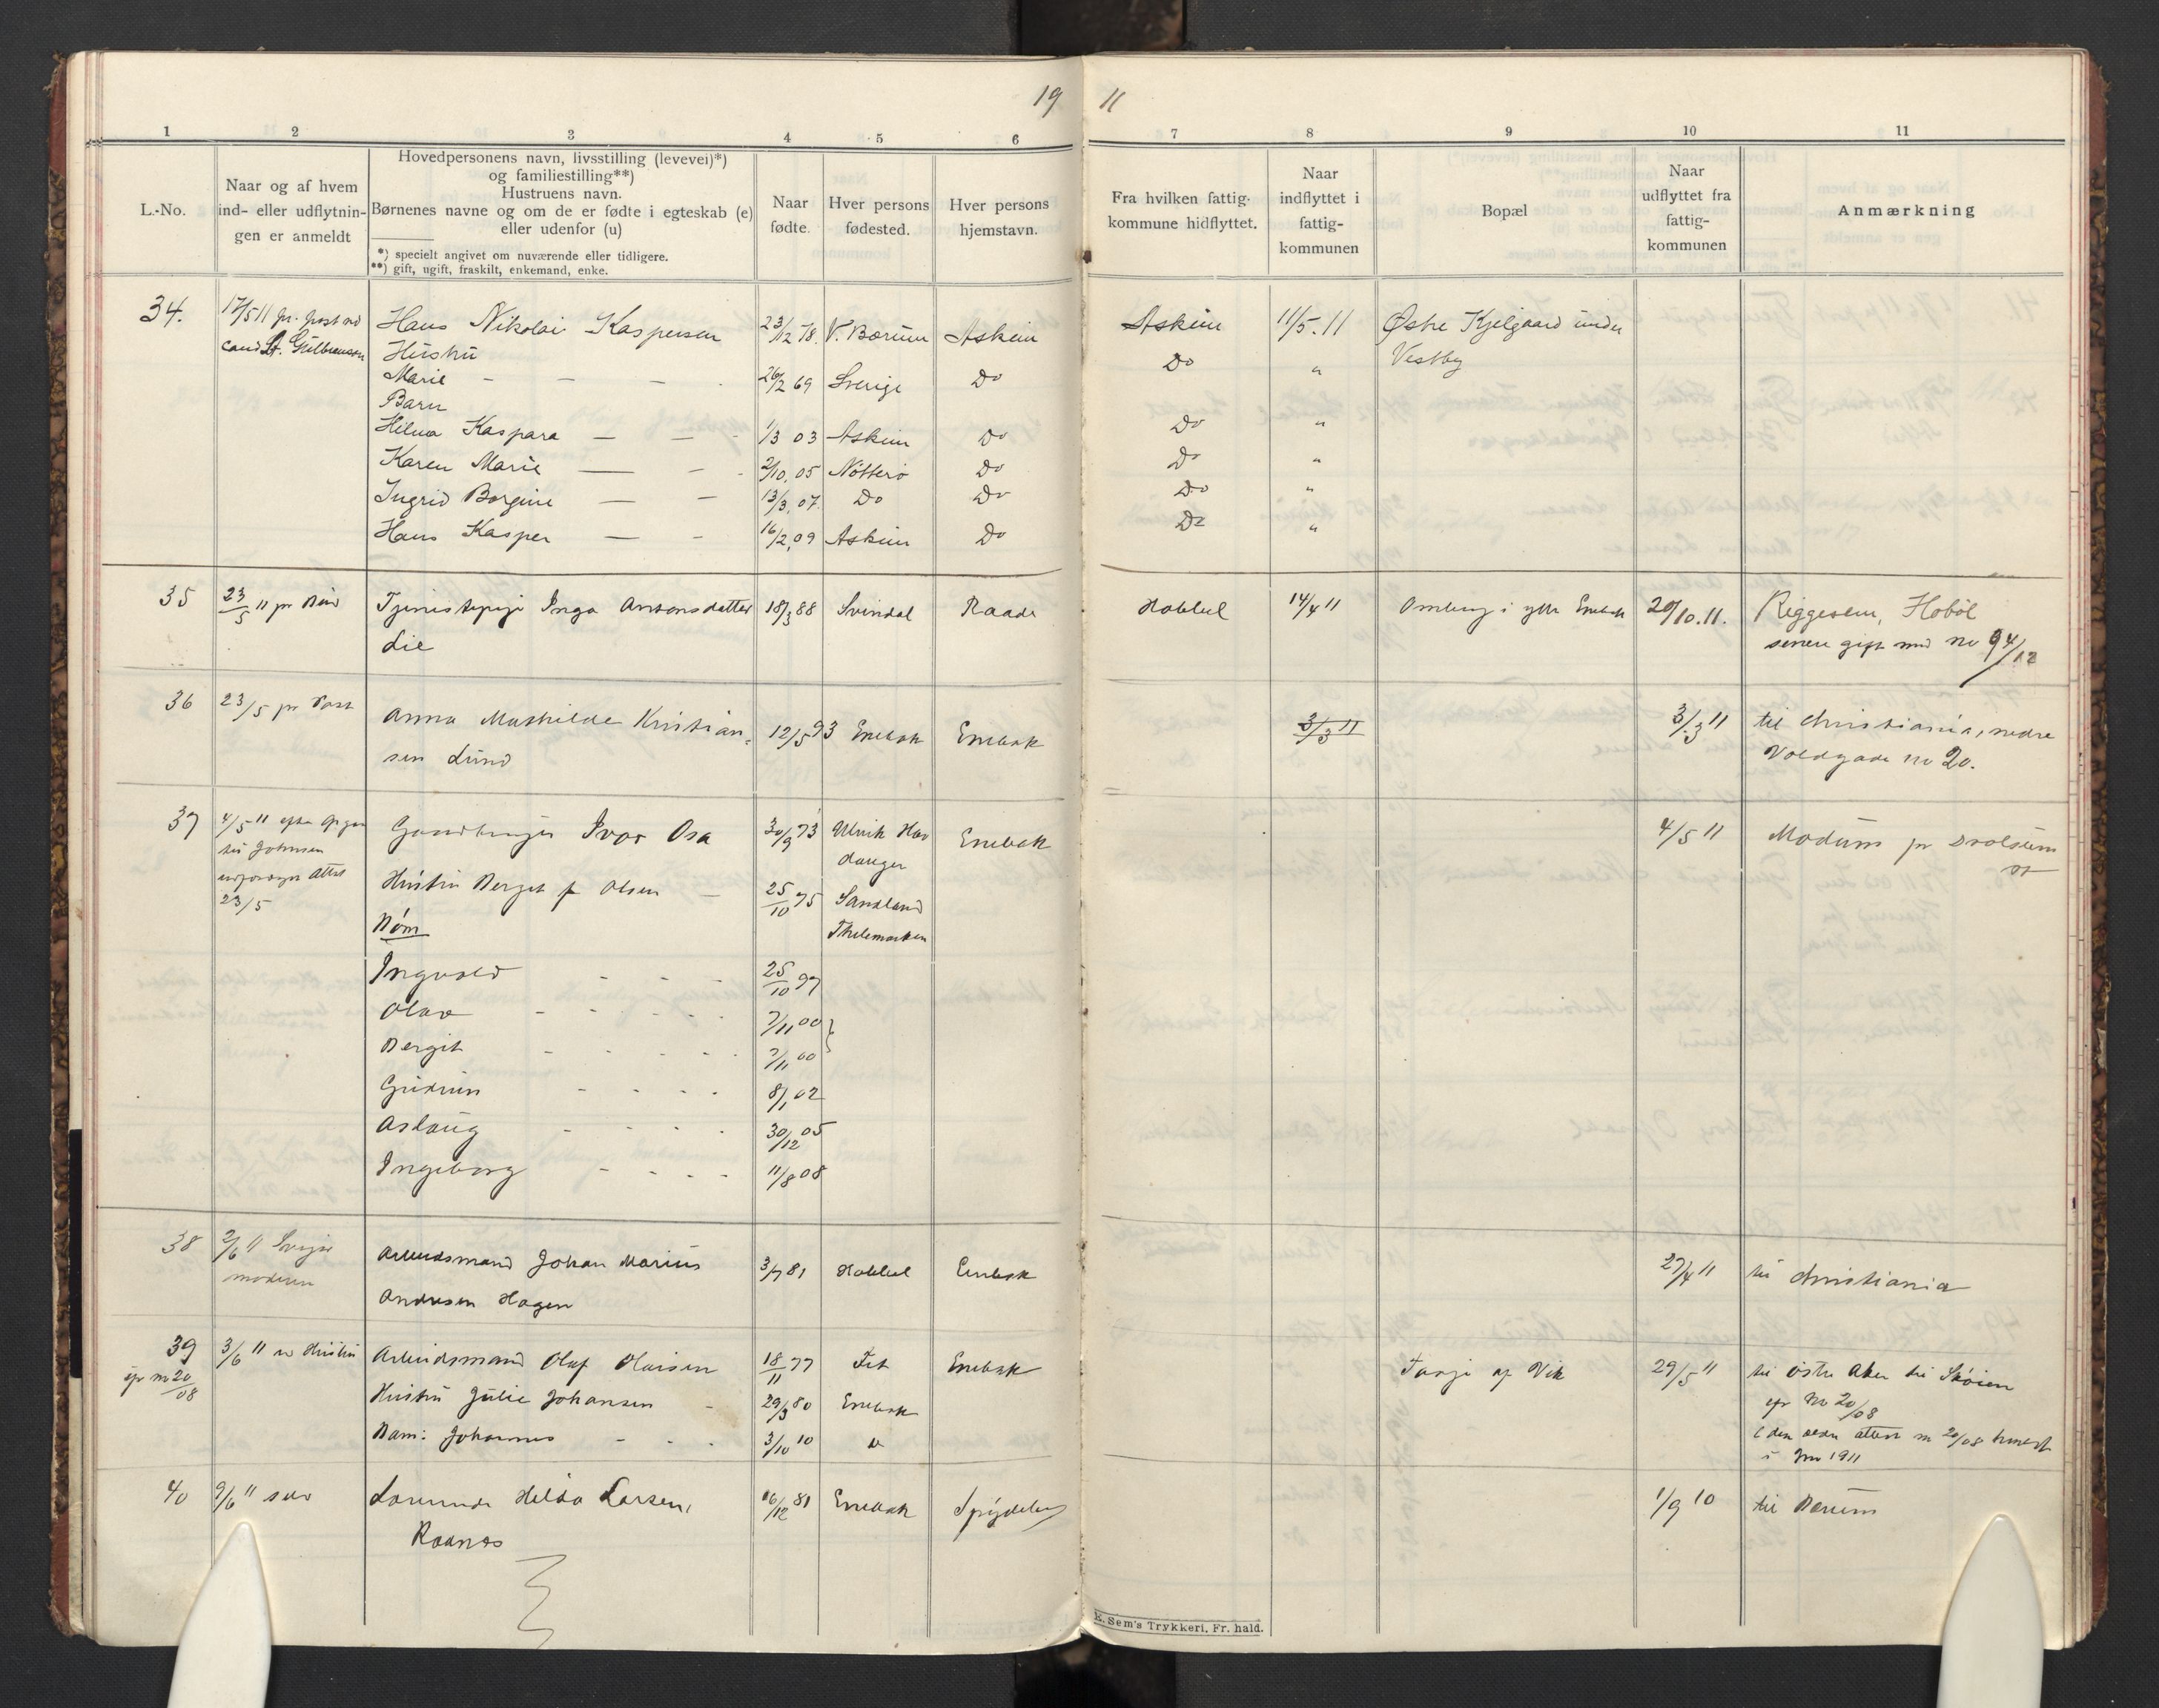 19 11
1 2 3 4 5 6 7 8 9 10 11
L.-No.
Naar og af hvem
ind- eller udflytnin-
gen er anmeldt
Hovedpersonens navn, livsstilling (levevei)*)
og familiestilling**)
Hustruens navn.
Børnenes navne og om de er fødte i egteskab (e)
eller udenfor (u)
*) specielt angivet om nuværende eller tidligere.
**) gift, ugift, fraskilt, enkemand, enke.
Naar
fødte.
Hver persons
fødested.
Hver persons
hjemstavn.
Fra hvilken fattig-
kommune hidflyttet.
Naar
indflyttet i
fattig-
kommunen
Bopæl
Naar
udflyttet fra
fattig-
kommunen
Anmærkning
34. 17/5 11 pr. post ved Hans Nikolai Kaspersen 23/12 78. V. Bærum Askim Askim 11/5.11 Østre Kjelgaard under
Hustru Vestby
Marie - - - 26/2 69 Sverige Do Do "
Barn
Hilma Kaspara - - - 1/3 03 Askim Do Do "
Karen Marie - - - 2/10.05 Nötterö Do Do "
Ingrid Borgine - - 13/3.07. Do Do Do "
Hans Kasper - - 16/2.09 Askim Do Do "
35 23/5 11 pr Tjenestepige Inga Antonsdatter 18/3 88 Svindal Raade Hobbel 14/4 11 i ytre Enebak 20/10.11. Riggesem, Hobøl
Lie senere gift med no 94/12
36 23/5 pr Post Anna Mathilde Kristian- 12/5 93 Enebak Enebak 3/3 11 3/3 11 til Christiania, nedre
sen Lund Voldgade no 20.
37 4/5 11 efter Gaardbruger Ivar Osa 30/9 73 Ulvik Har Enebak 4/5 11 Modum pr
til Johnsen danger
attest Hustru Berget f Olsen - 25/10 75 Sandland
23/5 Børn Thelemarken
Ingvald - - - 25/10 97
Olav - - - - 7/11 00
Bergit - - - - 7/11 00
Gudrun - - - 8/1 02
Aslaug - - - - 30/12 05
Ingeborg - - - - 11/8 08
38 2/6 11 Arbeidsmand Johan Marius 3/7 81 Hobbel Enebak 27/4 11 til Christiania
moderen Andresen Hagen
39 3/6 11 Hustru Arbeidsmand Olaf Olaisen 18/11 77 Fet Enebak af Vik 29/5 11 til østre Aker til Skøien
cfr no 20/08 Hustru Julie Johansen - 29/3 80 Enebak cfr No 20/08
Barn: Johannes - - - 3/10 10 attest no 20/08
i 1911
40 9/6 11 selv Hilda Larsen, 16/12 81 Enebak Spydeberg 1/9 10 til Bærum
K. Sem's Trykkeri, Fr. hald.